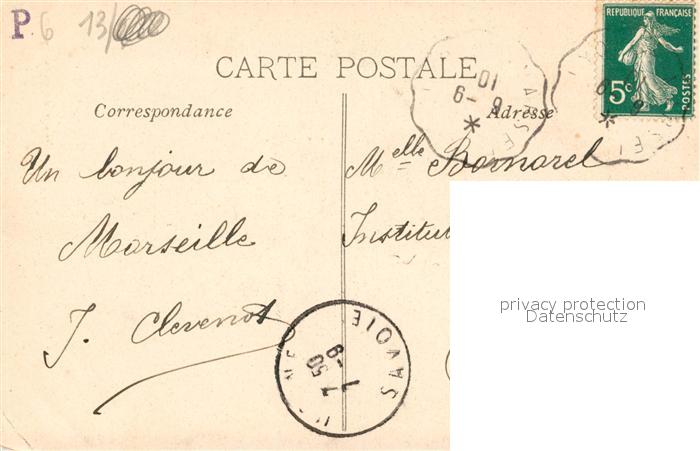 P. 6 13/
REPUBLIQUE FRANÇAISE
5c
POSTES
CARTE POSTALE
Correspondance
Adresse
Un bonjour de
Marseille
J. Clevenot
Melle Bomorel
Institu
SAVOIE
7 50
7 -9
10
6 -9
privacy protection
Datenschutz